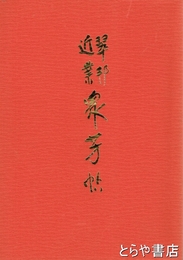 翠邦
近業
衆芳帖
とらや書房